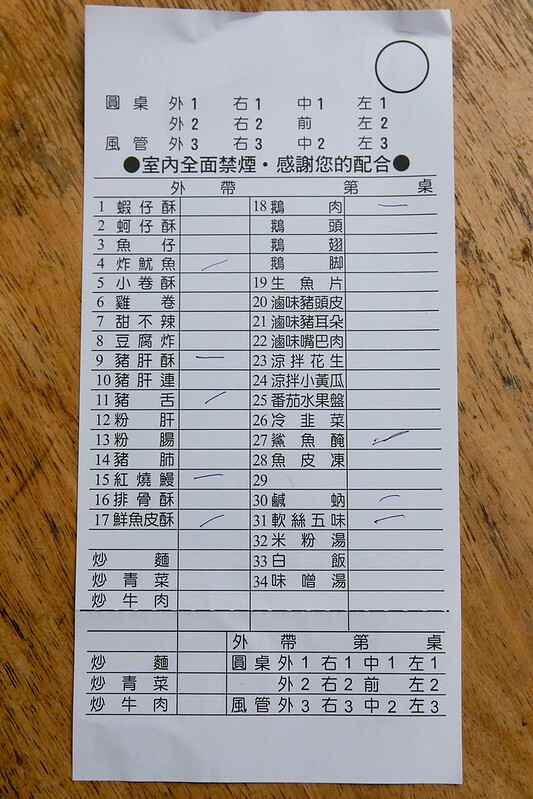 圓桌 外1 右1 中1 左1
外2 右2 前 左2
風管 外3 右3 中2 左3
●室內全面禁煙·感謝您的配合●
外帶 第桌
1 蝦仔酥 18 鵝肉
2 蚵仔酥 鵝頭
3 魚仔 鵝翅
4 炸魷魚 鵝脚
5 小卷酥 19 生魚片
6 雞卷 20 滷味豬頭皮
7 甜不辣 21 滷味豬耳朵
8 豆腐炸 22 滷味嘴巴肉
9 豬肝酥 23 涼拌花生
10 豬肝連 24 涼拌小黃瓜
11 豬舌 25 番茄水果盤
12 粉肝 26 冷韭菜
13 粉腸 27 鯊魚醃
14 豬肺 28 魚皮凍
15 紅燒鰻 29
16 排骨酥 30 鹹蚋
17 鮮魚皮酥 31 軟絲五味
32 米粉湯
炒麵 33 白飯
炒青菜 34 味噌湯
炒牛肉
外帶第桌
炒麵 圓桌 外1 右1 中1 左1
炒青菜 外2 右2 前 左2
炒牛肉 風管 外3 右3 中2 左3